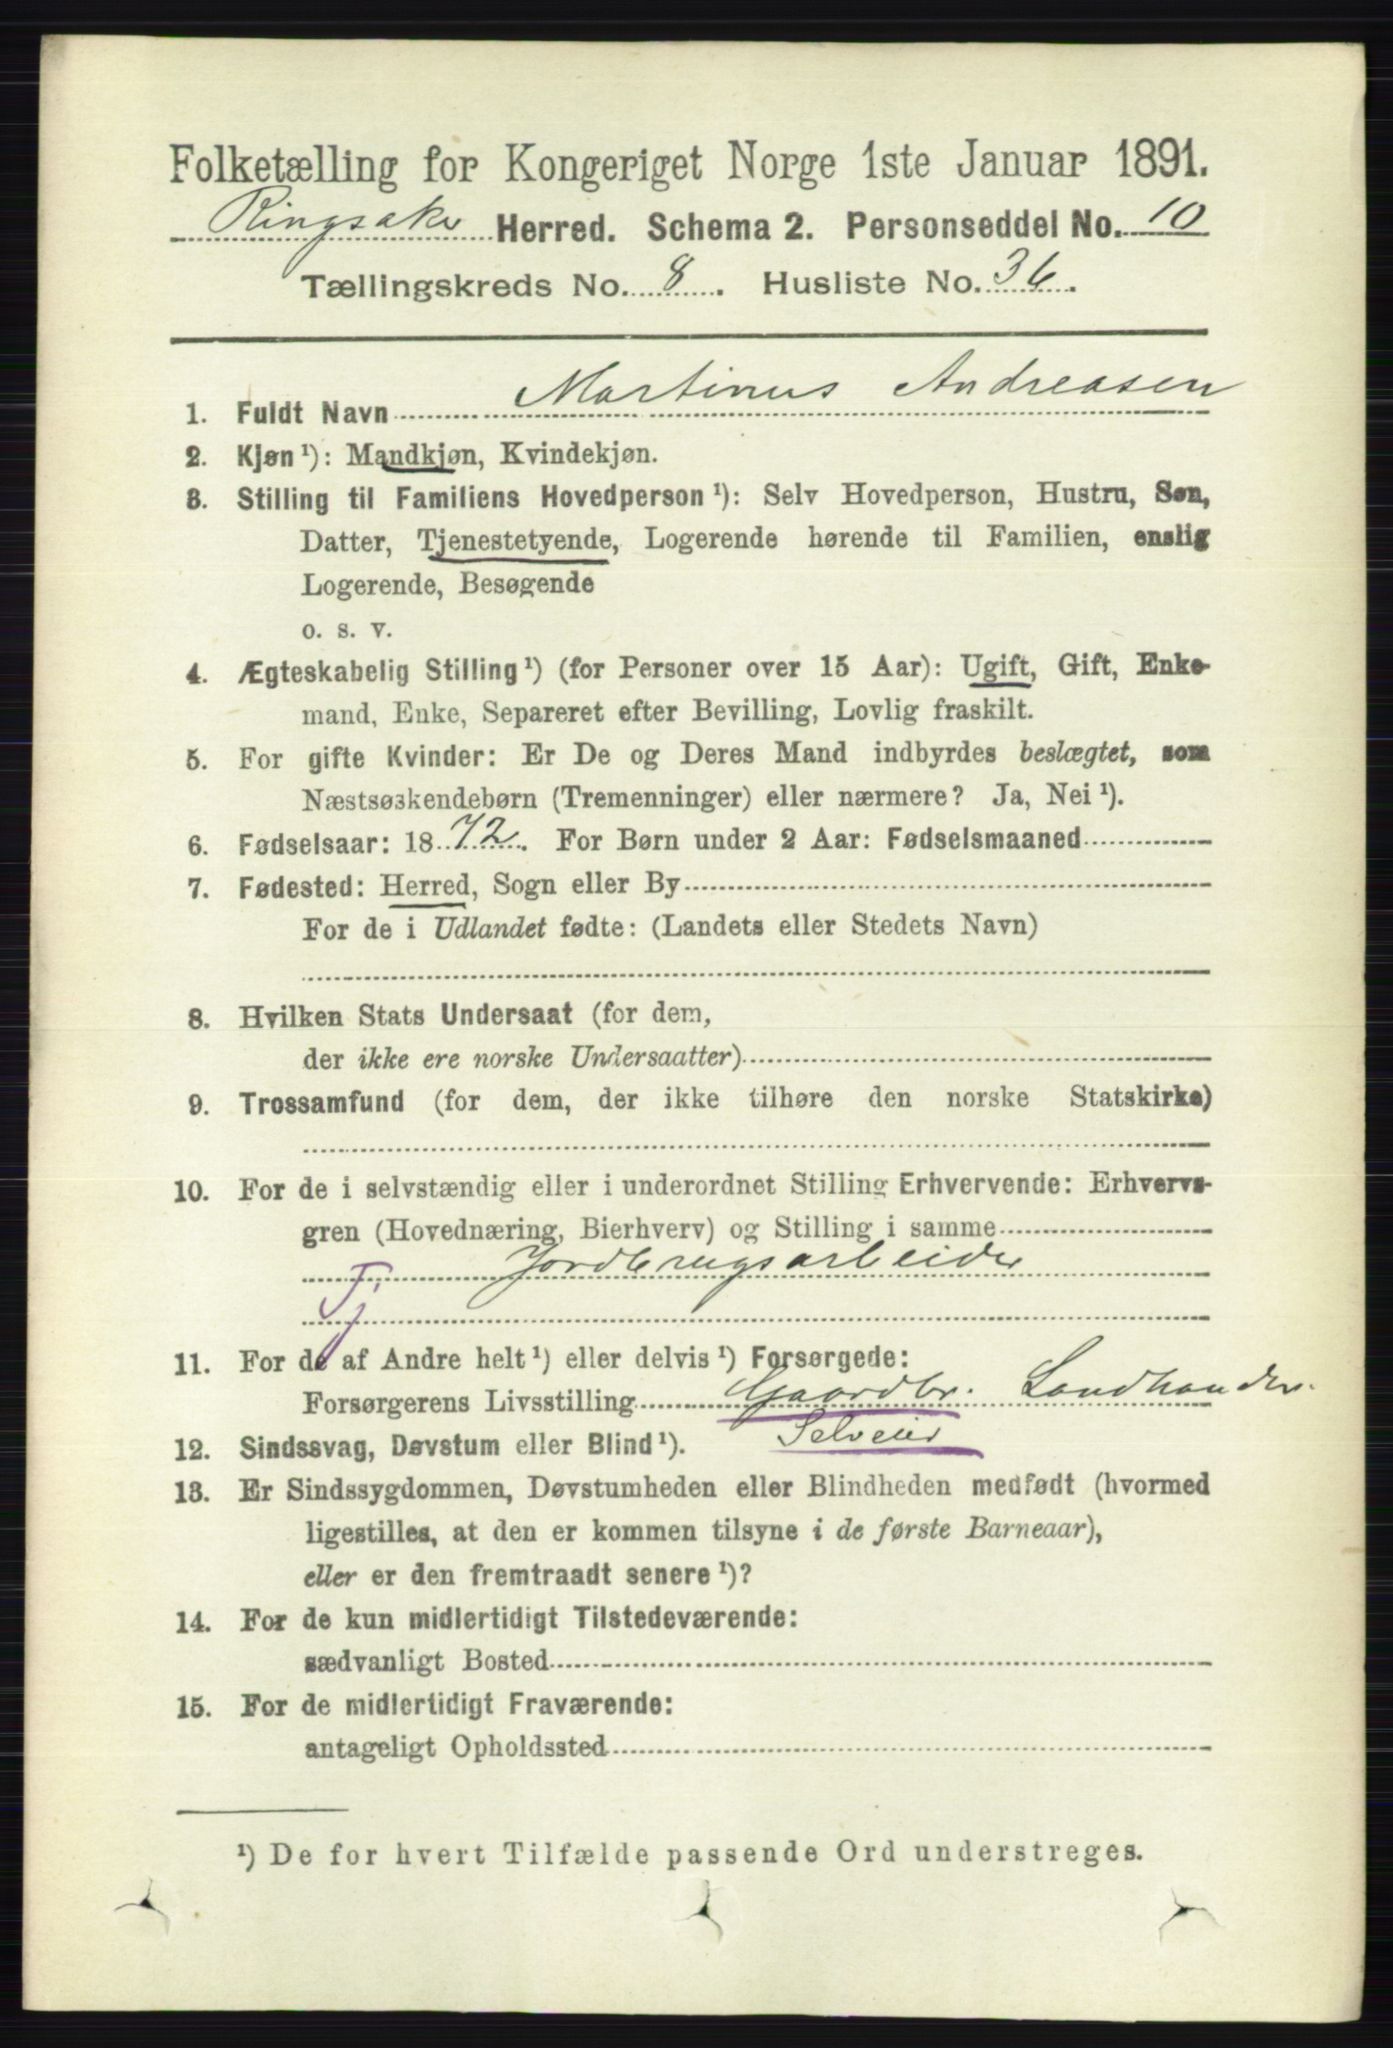 Folketælling for Kongeriget Norge 1ste Januar 1891.
Ringsaker Herred. Schema 2. Personseddel No. 10
Tællingskreds No. 8. Husliste No. 36.
1. Fuldt Navn Martinus Andreasen
2. Kjøn ¹): Mandkjøn, Kvindekjøn.
3. Stilling til Familiens Hovedperson ¹): Selv Hovedperson, Hustru, Søn,
Datter, Tjenestetyende, Logerende hørende til Familien, enslig
Logerende, Besøgende
o. s. v.
4. Ægteskabelig Stilling ¹) (for Personer over 15 Aar): Ugift, Gift, Enke-
mand, Enke, Separeret efter Bevilling, Lovlig fraskilt.
5. For gifte Kvinder: Er De og Deres Mand indbyrdes beslægtet, som
Næstsøskendebørn (Tremenninger) eller nærmere? Ja, Nei ¹).
6. Fødselsaar: 1872. For Børn under 2 Aar: Fødselsmaaned
7. Fødested: Herred, Sogn eller By
For de i Udlandet fødte: (Landets eller Stedets Navn)
8. Hvilken Stats Undersaat (for dem,
der ikke ere norske Undersaatter)
9. Trossamfund (for dem, der ikke tilhøre den norske Statskirke)
10. For de i selvstændig eller i underordnet Stilling Erhvervende: Erhvervs-
gren (Hovednæring, Bierhverv) og Stilling i samme
Jordbrugsarbeider
Tj
11. For de af Andre helt ¹) eller delvis ¹) Forsørgede:
Forsørgerens Livsstilling Gaardbr. Landhander.
12. Sindssvag, Døvstum eller Blind ¹). Selveier
13. Er Sindssygdommen, Døvstumheden eller Blindheden medfødt (hvormed
ligestilles, at den er kommen tilsyne i de første Barneaar),
eller er den fremtraadt senere ¹)?
14. For de kun midlertidigt Tilstedeværende:
sædvanligt Bosted
15. For de midlertidigt Fraværende:
antageligt Opholdssted
¹) De for hvert Tilfælde passende Ord understreges.